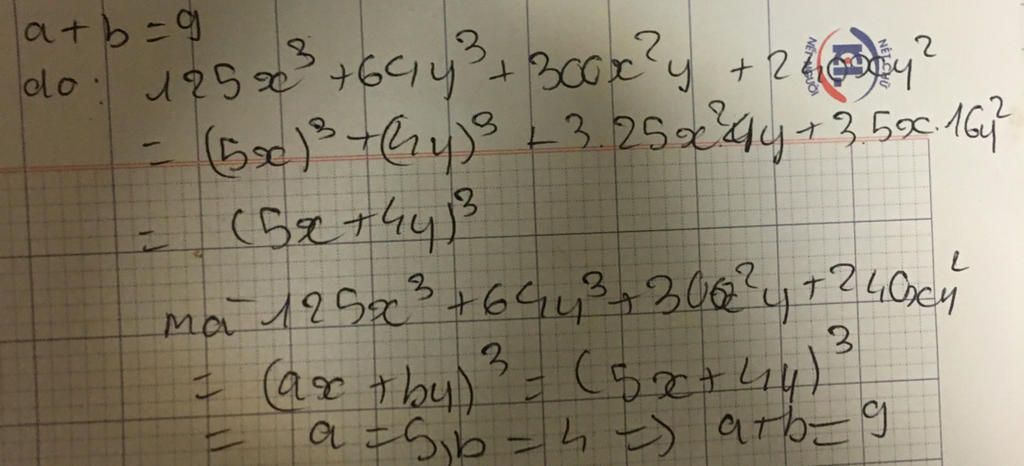 a+b=9
do: 125x³+64y³+300x²y+240xy²
= (5x)³+(4y)³+3.25x².4y+3.5x.16y²
= (5x+4y)³
mà 125x³+64y³+300x²y+240xy²
= (ax+by)³=(5x+4y)³
= a=5,b=4=> a+b=9